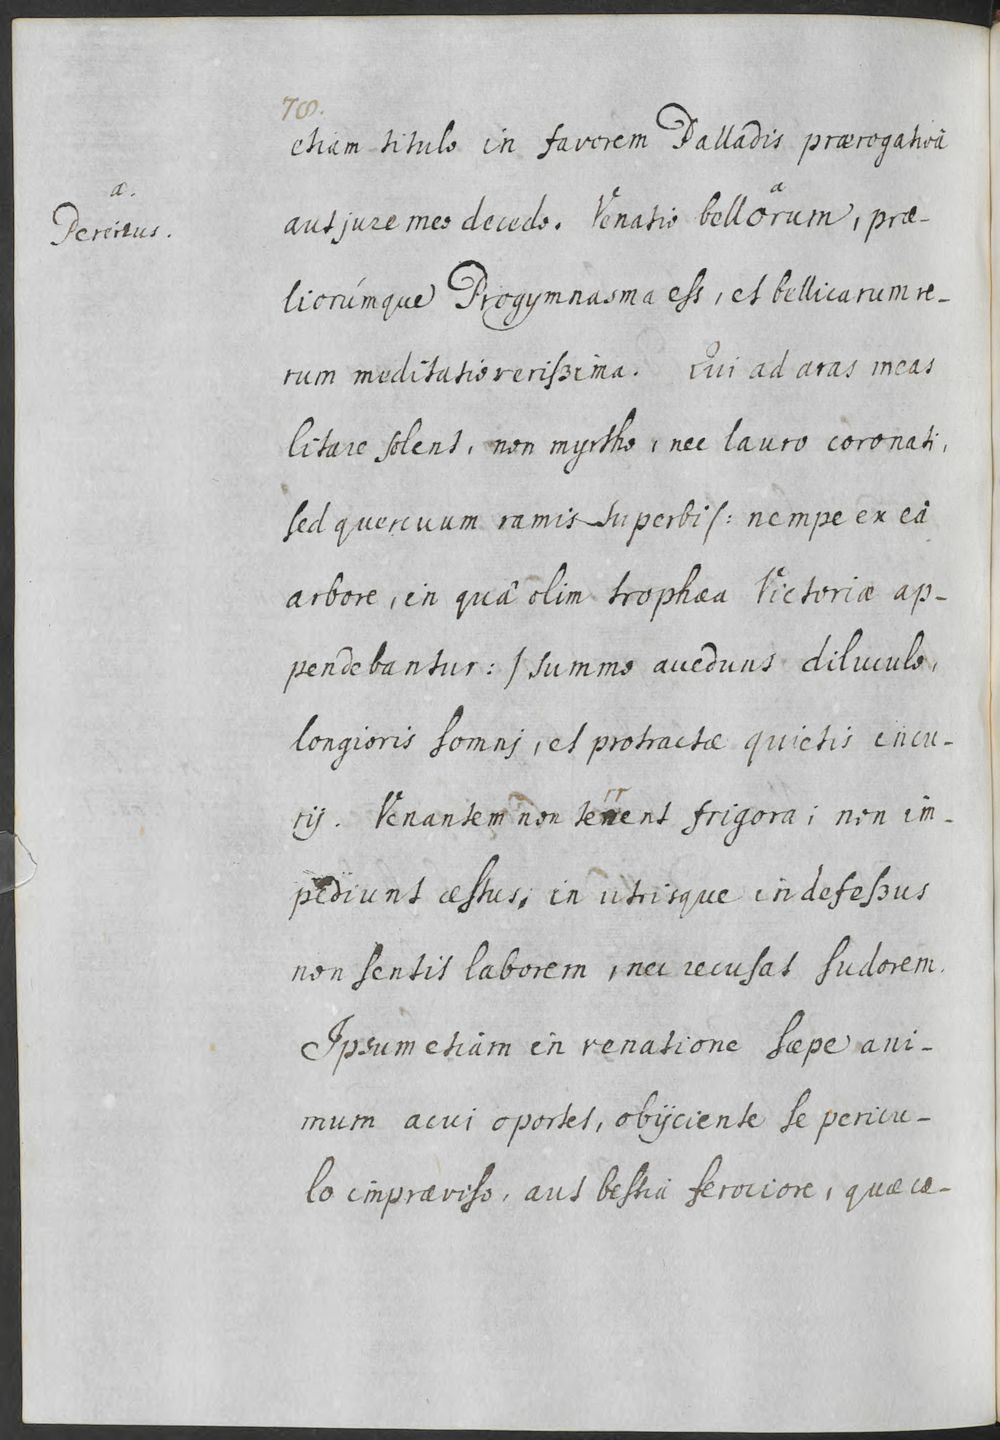 78.
etiam titulo in favorem Palladis prærogativâ
a.
Pererius.
aut jure meo decedo. Venatio bellorum a, præ-
liorúmque Progymnasma est, et bellicarum re-
rum meditatio verissima. Qui ad aras meas
litare solent, non myrtho, nec lauro coronati,
sed quercuum ramis superbi /: nempe ex eâ
arbore, in quâ olim trophæa Victoriæ ap-
pendebantur: / summo accedunt diluculo,
longioris somnj, et protractæ quietis incu-
rij. Venantem non terrent frigora; non im-
pediunt æstus; in utrisque indefessus
non sentit laborem, nec recusat sudorem.
Ipsum etiam in venatione sæpe ani-
mum acui oportet, obijciente se pericu-
lo impræviso, aut bestiâ ferociore, quæ cæ-